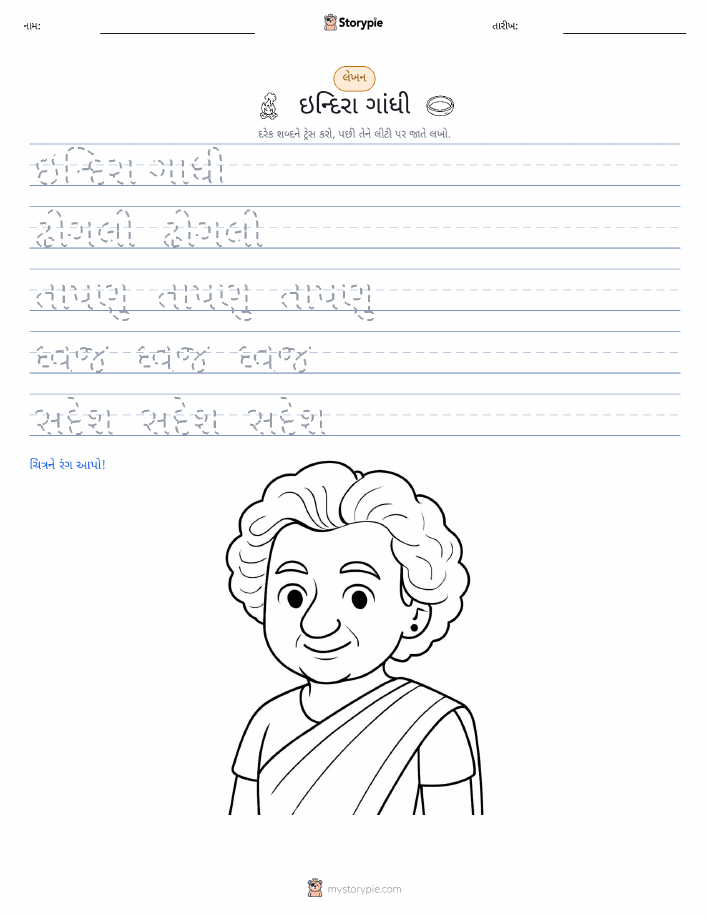 નામ:
Storypie
તારીખ:
લેખન
ઇન્દિરા ગાંધી
દરેક શબ્દને ટ્રેસ કરો, પછી તેને લીટી પર જાતે લખો.
ઇન્દિરા ગાંધી
ઢીંગલી ઢીંગલી
તાપણું તાપણું તાપણું
ધ્વજ ધ્વજ ધ્વજ
સંદેશ સંદેશ સંદેશ
ચિત્રને રંગ આપો!
mystorypie.com